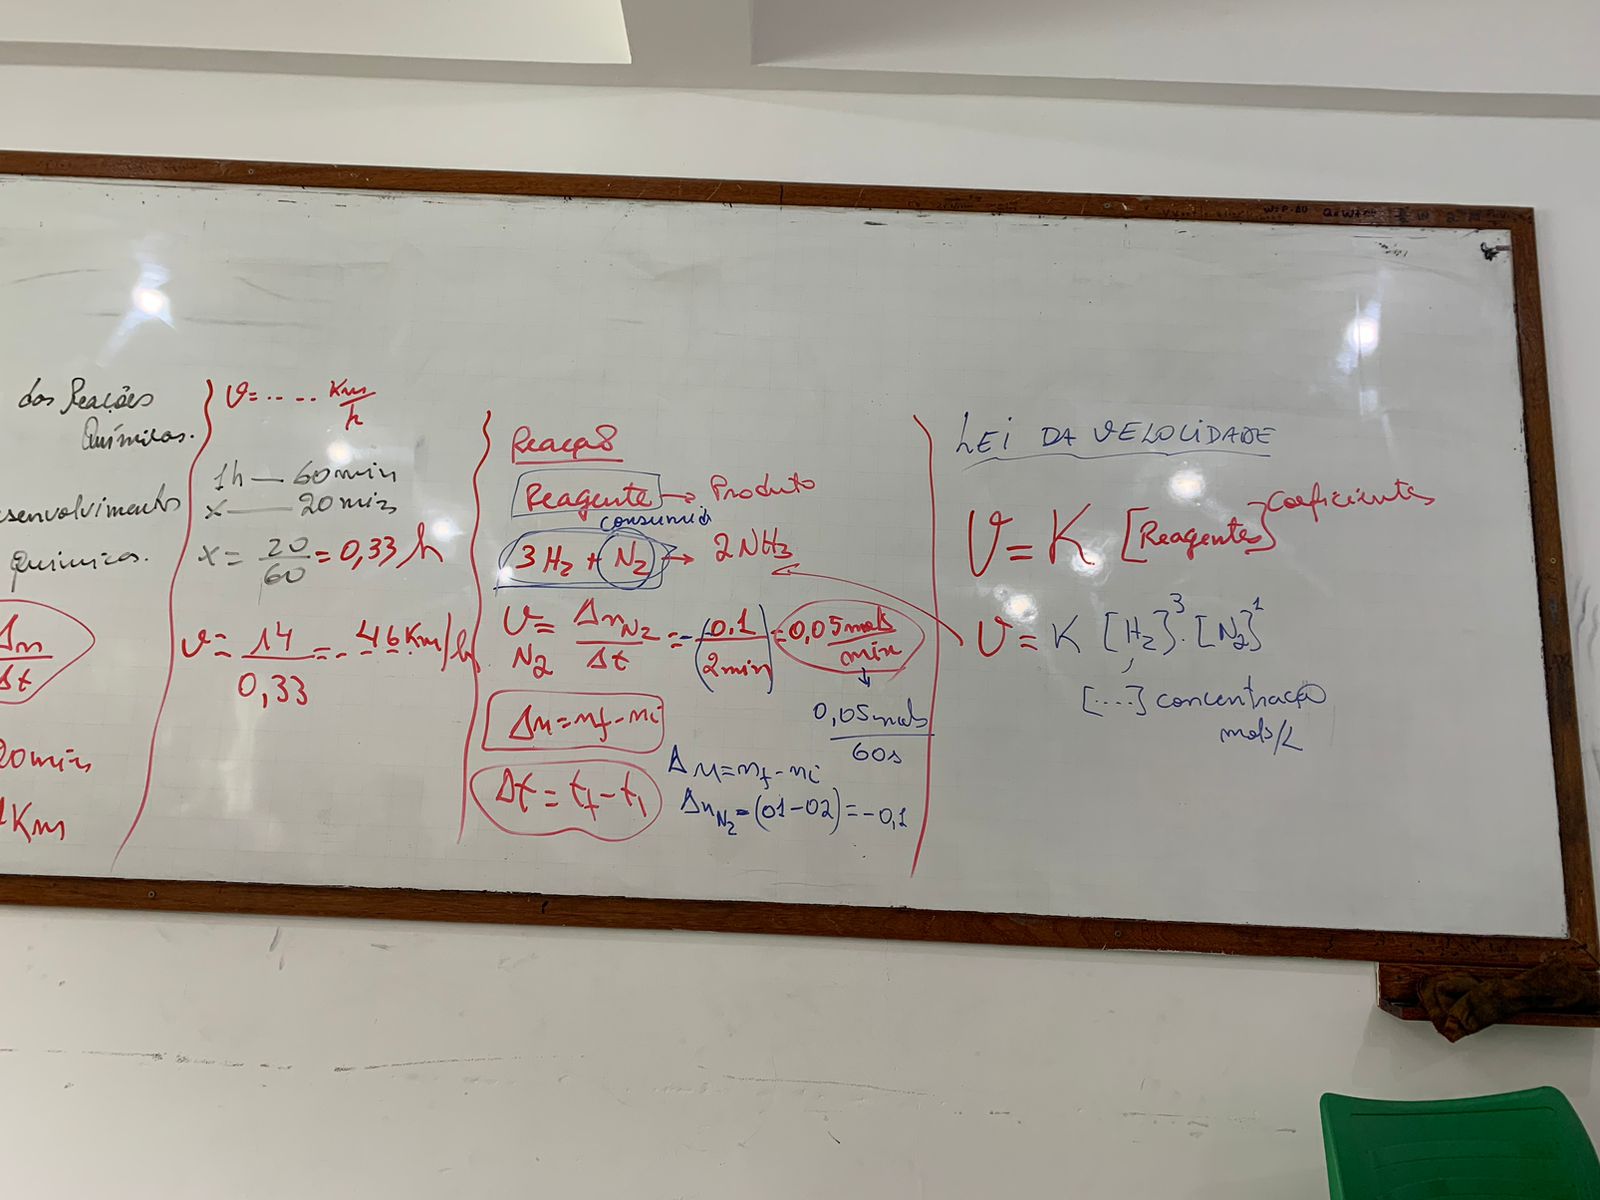 das Reações
Químicas.
esenvolvimento
químicas.
Δn
Δt
20min
Km
v=..... Km/h
1h — 60min
x — 20min
x = 20/60 = 0,33 h
v = 14/0,33 = 46 Km/h
Reação
Reagente → Produto
consumid
3 H₂ + N₂ → 2NH₃
v N₂ = Δn N₂/Δt = -(0,1/2min) = 0,05 mols/min
0,05 mols/60s
Δn = nf - ni
Δt = tf - ti
Δn = nf - ni
Δn N₂ = (01-02) = -0,1
LEI DA VELOCIDADE
v = K [Reagentes] Coeficientes
v = K [H₂]³ · [N₂]¹
[....] concentração
mols/L